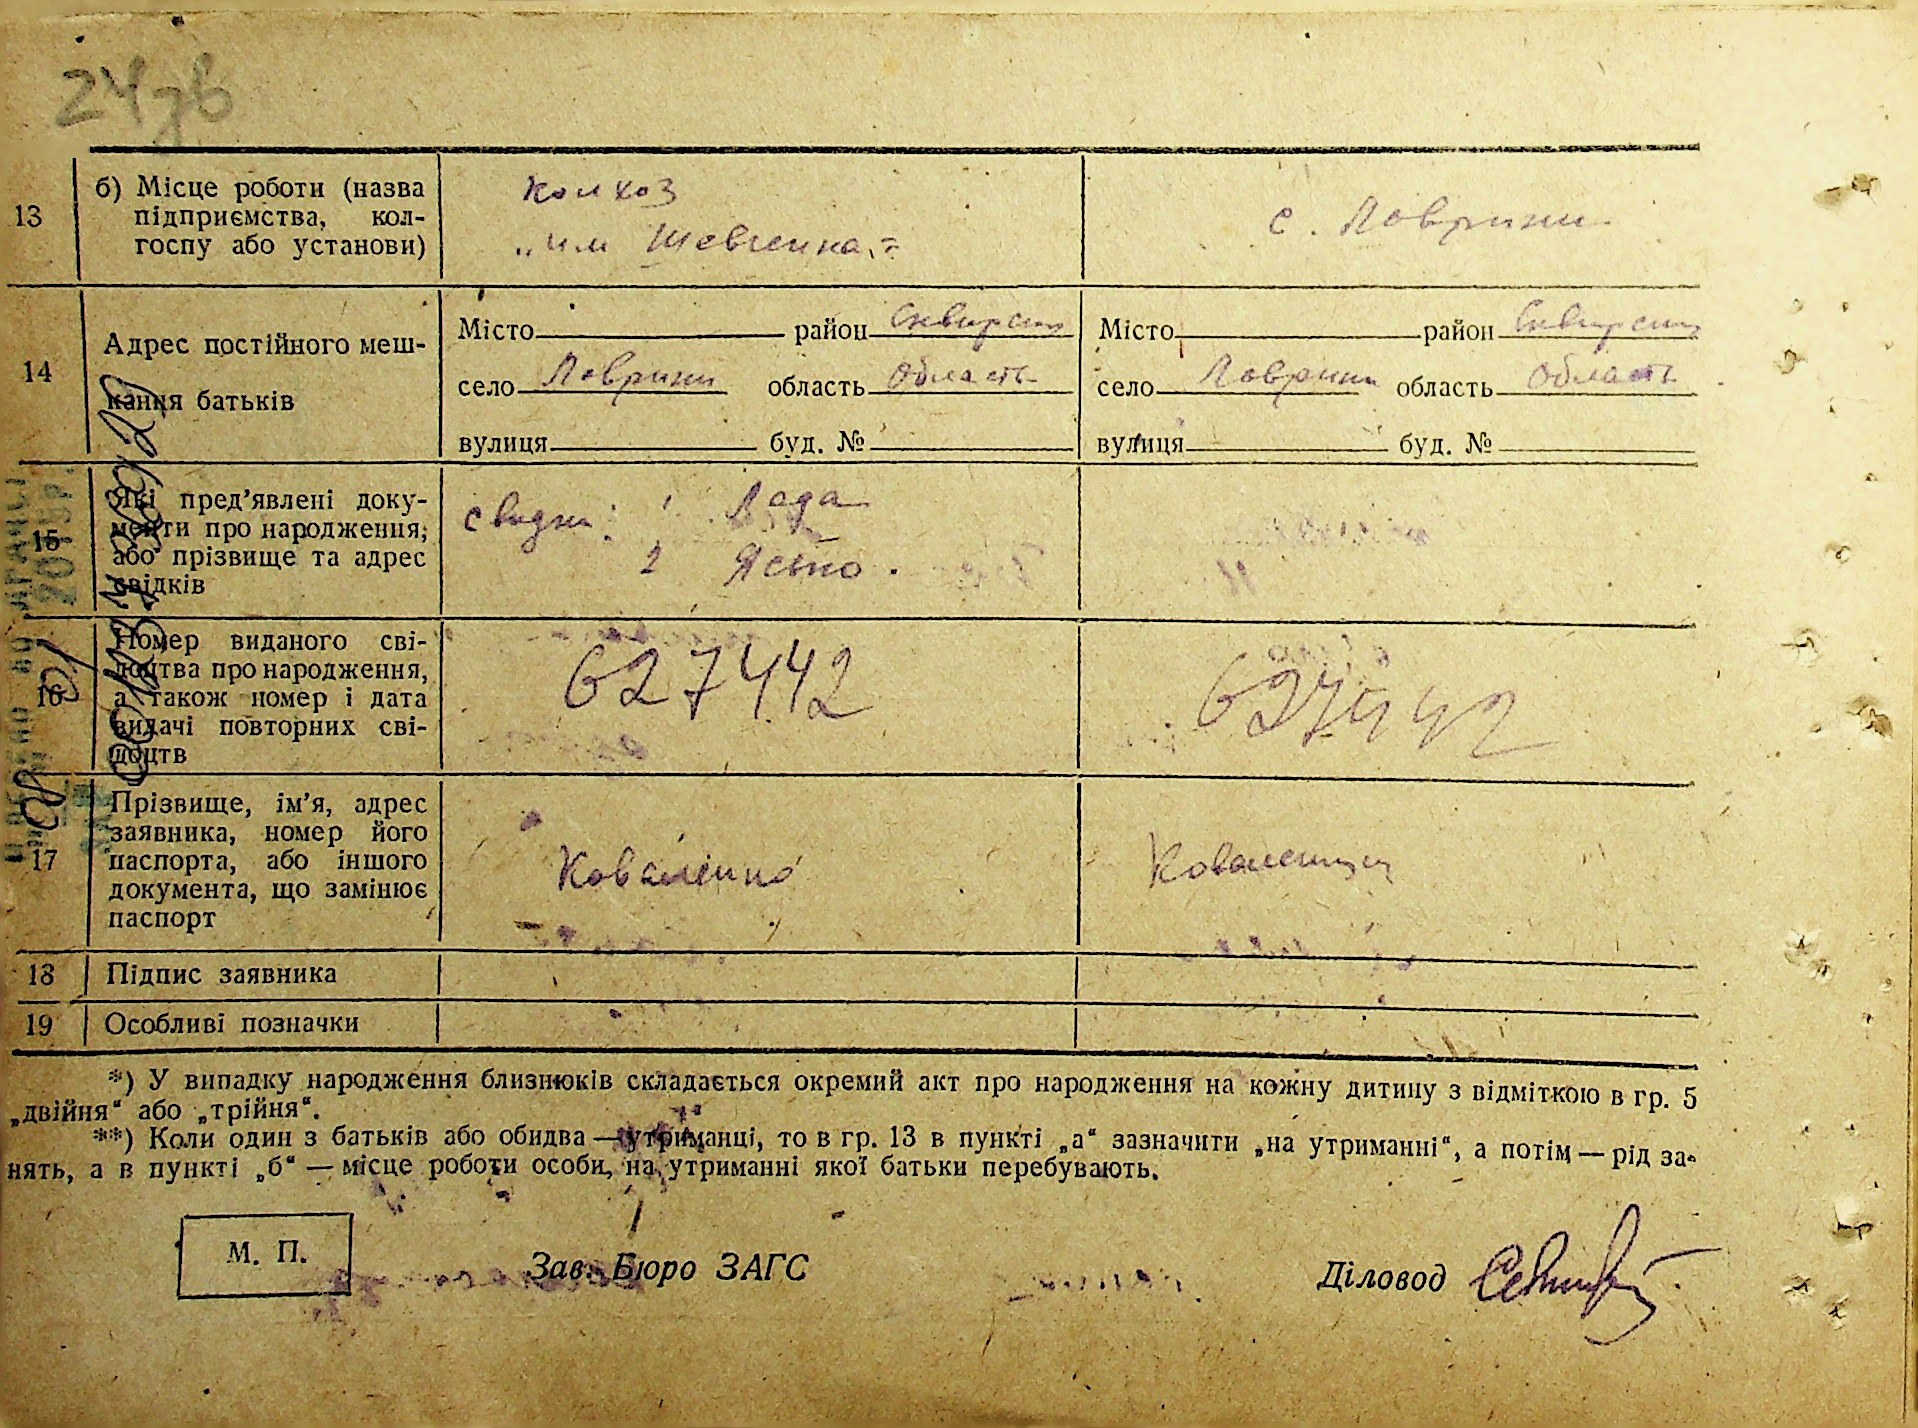 24зв
13
б) Місце роботи (назва
підприємства, кол-
госпу або установи)
Колхоз
„им Шевченка"
с. Лаврики
14
Адрес постійного меш-
кання батьків
Місто район Сквирский
село Лаврики область область
вулиця буд. №
Місто район Сквирский
село Лаврики область область
вулиця буд. №
15
Які пред'явлені доку-
менти про народження,
або прізвище та адрес
свідків
свидки: 1
2
16
Номер виданого сві-
доцтва про народження,
а також номер і дата
видачі повторних сві-
доцтв
627442
627442
17
Прізвище, ім'я, адрес
заявника, номер його
паспорта, або іншого
документа, що замінює
паспорт
Коваленко
18
Підпис заявника
19
Особливі позначки
*) У випадку народження близнюків складається окремий акт про народження на кожну дитину з відміткою в гр. 5
„двійня" або „трійня".
**) Коли один з батьків або обидва—утриманці, то в гр. 13 в пункті „а" зазначити „на утриманні", а потім—рід за-
нять, а в пункті „б" — місце роботи особи, на утриманні якої батьки перебувають.
М. П.
Зав. Бюро ЗАГС
Діловод